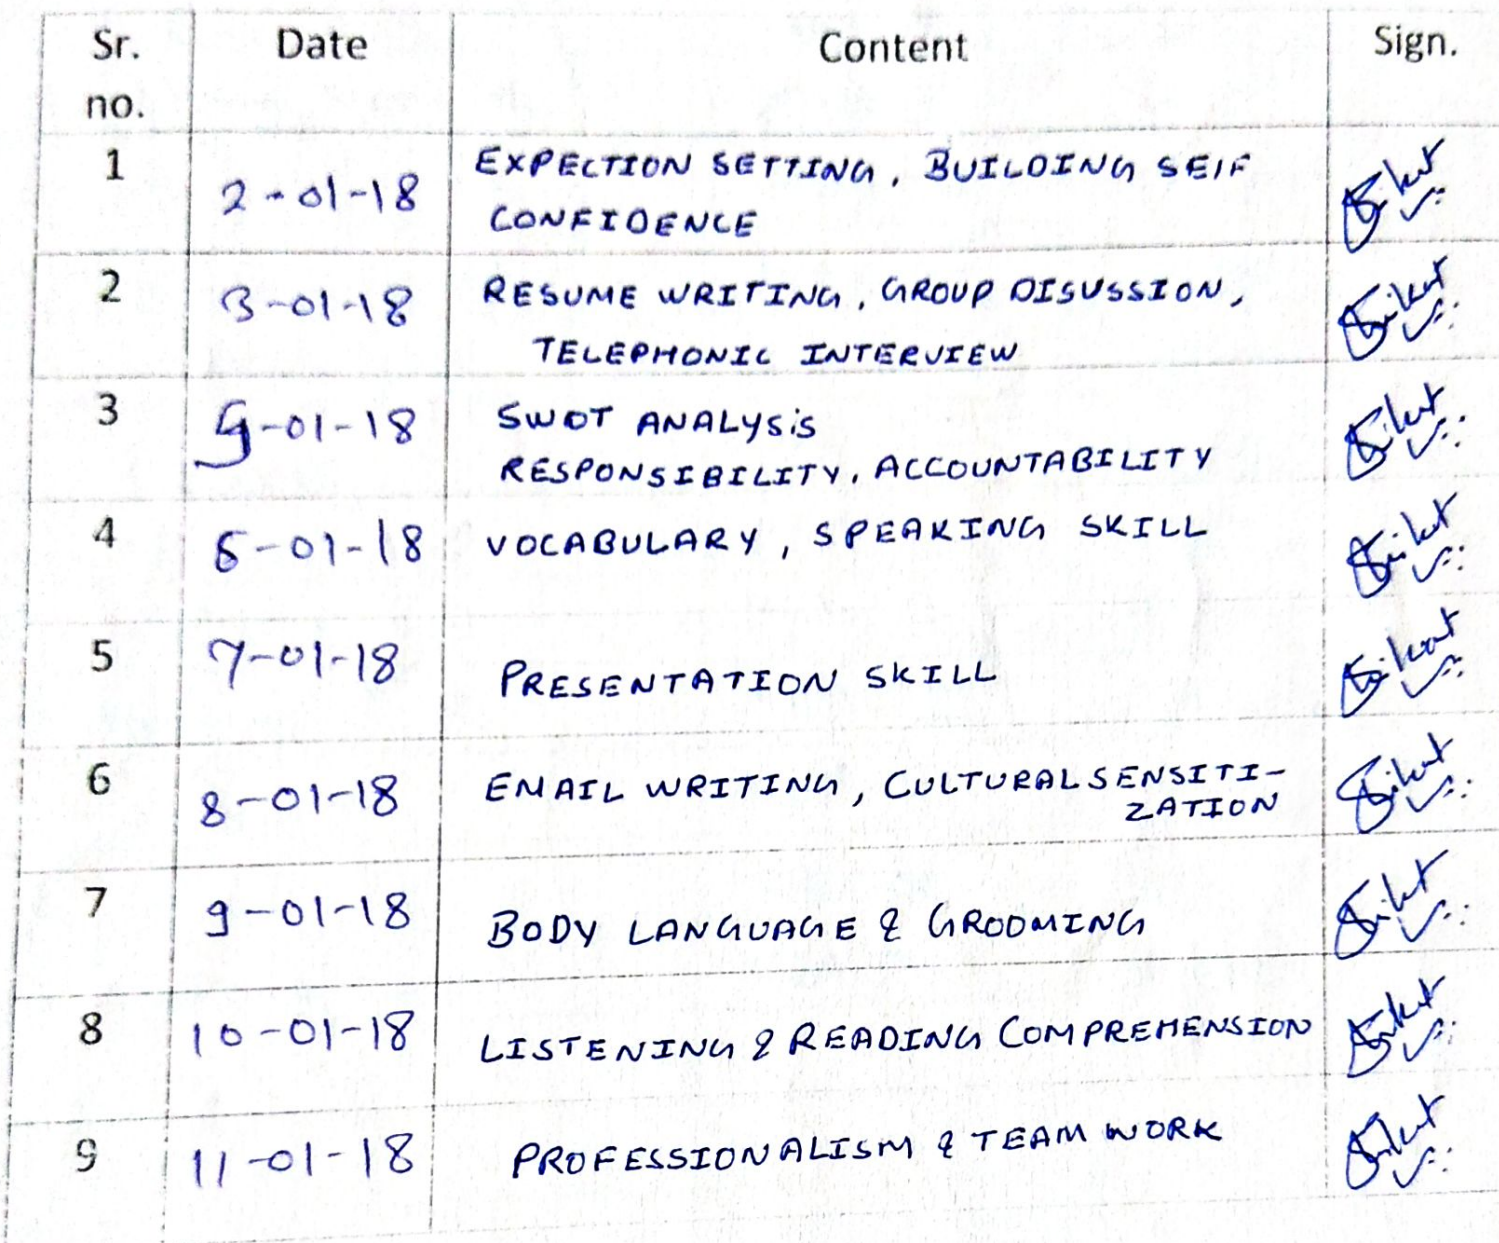 Sr. no. Date Content Sign.
1 2-01-18 EXPECTION SETTING, BUILDING SELF
CONFIDENCE
2 3-01-18 RESUME WRITING, GROUP DISUSSION,
TELEPHONIC INTERVIEW
3 -01-18 SWOT ANALYSiS
RESPONSIBILITY, ACCOUNTABILITY
4 -01-18 VOCABULARY, SPEAKING SKILL
5 7-01-18 PRESENTATION SKILL
6 8-01-18 EMAIL WRITING, CULTURAL SENSITI-
ZATION
7 9-01-18 BODY LANGUAGE & GROOMING
8 10-01-18 LISTENING & READING COMPREHENSION
9 11-01-18 PROFESSIONALISM & TEAM WORK